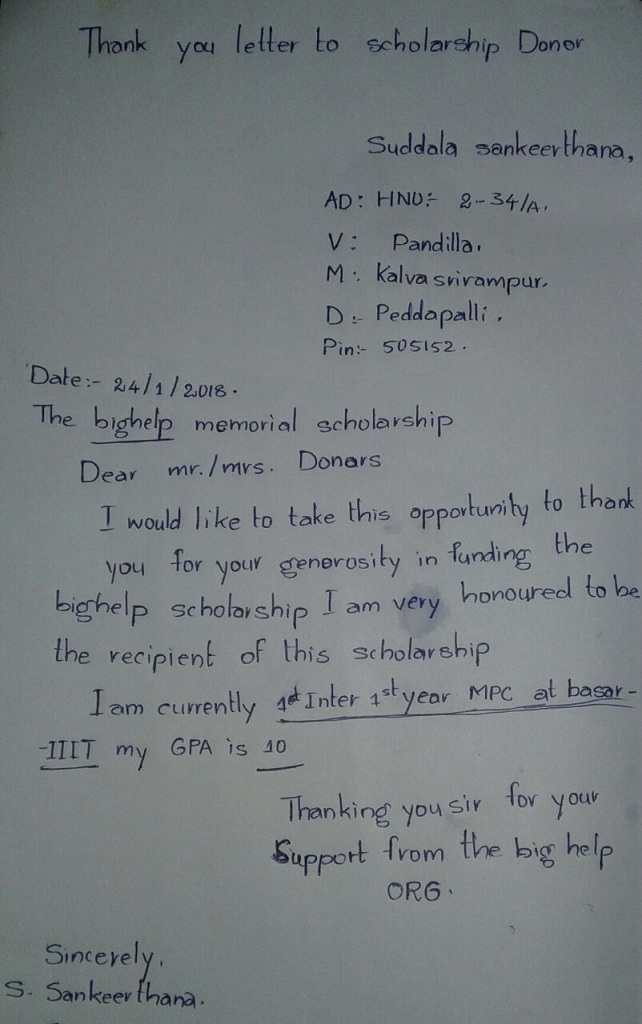 Thank you letter to scholarship Donor
Suddala sankeerthana,
AD: HNO:- 2-34/A.
V: Pandilla.
M: Kalvasrirampur.
D:- Peddapalli.
Pin:- 505152.
Date:- 24/1/2018.
The bighelp memorial scholarship
Dear mr./mrs. Donars
I would like to take this opportunity to thank
you for your generosity in funding the
bighelp scholarship I am very honoured to be
the recipient of this scholarship
I am currently Inter 1st year MPC at basar-
-IIIT my GPA is 10
Thanking you sir for your
Support from the big help
ORG.
Sincerely,
S. Sankeerthana.